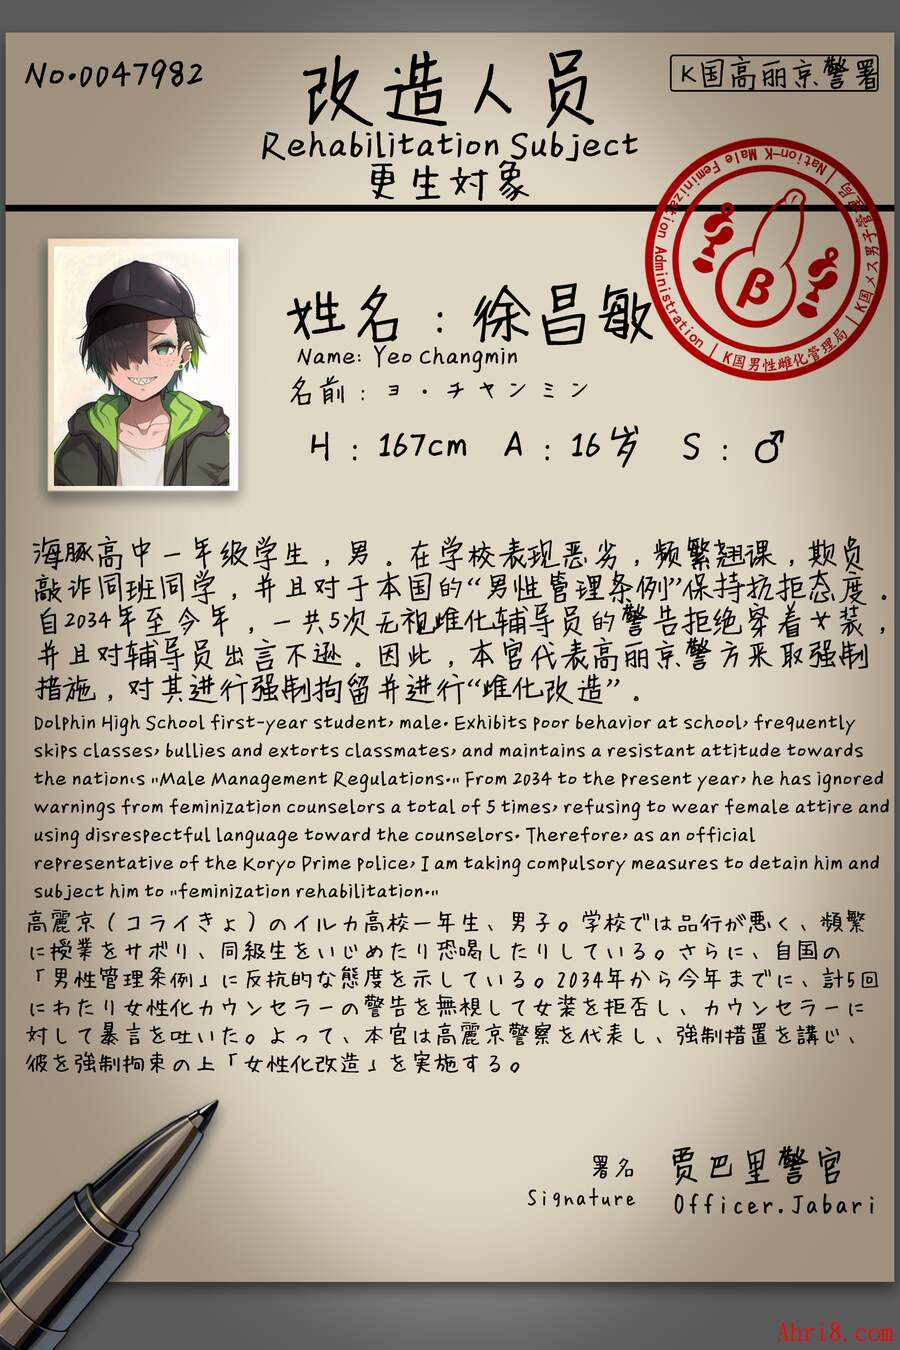 No.0047982
改造人员
K国高丽京警署
Rehabilitation Subject
更生対象
Nation-K Male Feminization Administration | K国男性雌化管理局 | K国メス男子管理局 |
β
姓名：徐昌敏
Name: Yeo changmin
名前：ヨ・チャンミン
H：167cm A：16岁 S：♂
海豚高中一年级学生，男。在学校表现恶劣，频繁翘课，欺负
敲诈同班同学，并且对于本国的“男性管理条例”保持抗拒态度。
自2034年至今年，一共5次无视雌化辅导员的警告拒绝穿着女装，
并且对辅导员出言不逊。因此，本官代表高丽京警方采取强制
措施，对其进行强制拘留并进行“雌化改造”。
Dolphin High School first-year student, male. Exhibits poor behavior at school, frequently
skips classes, bullies and extorts classmates, and maintains a resistant attitude towards
the nation's "Male Management Regulations." From 2034 to the present year, he has ignored
warnings from feminization counselors a total of 5 times, refusing to wear female attire and
using disrespectful language toward the counselors. Therefore, as an official
representative of the Koryo Prime police, I am taking compulsory measures to detain him and
subject him to "feminization rehabilitation."
高麗京（コライきょ）のイルカ高校一年生、男子。学校では品行が悪く、頻繁
に授業をサボり、同級生をいじめたり恐喝したりしている。さらに、自国の
「男性管理条例」に反抗的な態度を示している。2034年から今年までに、計5回
にわたり女性化カウンセラーの警告を無視して女装を拒否し、カウンセラーに
対して暴言を吐いた。よって、本官は高麗京警察を代表し、強制措置を講じ、
彼を強制拘束の上「女性化改造」を実施する。
署名 贾巴里警官
Signature Officer.Jabari
Ahri8.com